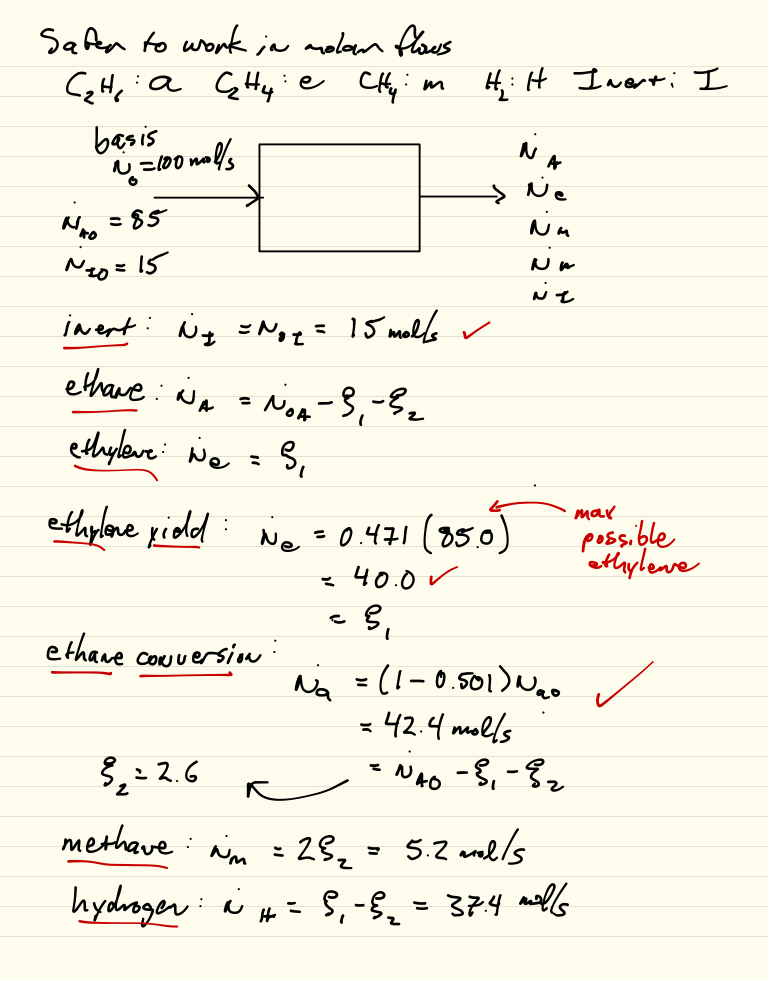 Safer to work in molar flows
C₂H₆ : a C₂H₄ : e CH₄ : m H₂ : H Inert : I
basis
Ṅ₀ = 100 mol/s
Ṅ_A0 = 85
Ṅ_I0 = 15
Ṅ_A
Ṅ_e
Ṅ_m
Ṅ_H
Ṅ_I
inert : Ṅ_I = Ṅ_0I = 15 mol/s ✓
ethane : Ṅ_A = Ṅ_0A - ξ₁ - ξ₂
ethylene : Ṅ_e = ξ₁
ethylene yield : Ṅ_e = 0.471 (85.0)
max
possible
ethylene
= 40.0 ✓
= ξ₁
ethane conversion :
Ṅ_a = (1 - 0.501) Ṅ_a0 ✓
= 42.4 mol/s
= Ṅ_A0 - ξ₁ - ξ₂
ξ₂ = 2.6
methane : Ṅ_m = 2ξ₂ = 5.2 mol/s
hydrogen : Ṅ_H = ξ₁ - ξ₂ = 37.4 mol/s